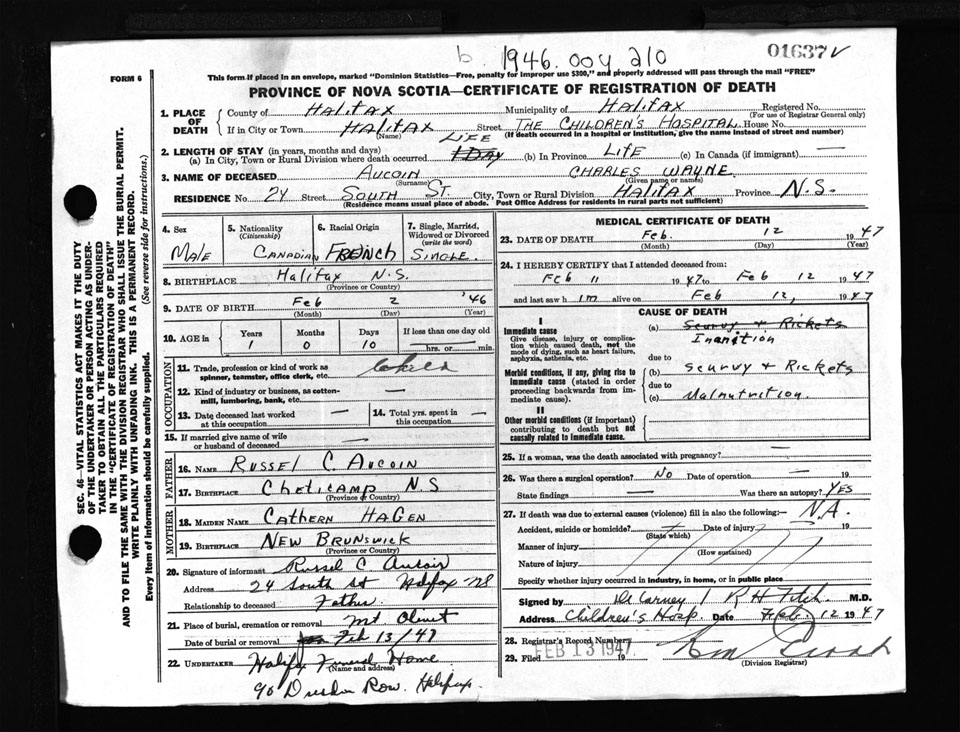 b. 1946. 004 210
01637 v
FORM 6
This form if placed in an envelope, marked "Dominion Statistics—Free, penalty for improper use $300," and properly addressed will pass through the mail "FREE"
PROVINCE OF NOVA SCOTIA—CERTIFICATE OF REGISTRATION OF DEATH
1. PLACE OF DEATH
County of HALIFAX Municipality of HALIFAX Registered No.
(For use of Registrar General only)
If in City or Town HALIFAX Street THE CHILDREN'S HOSPITAL House No.
(Name) (If death occurred in a hospital or institution, give the name instead of street and number)
2. LENGTH OF STAY (in years, months and days)
LIFE
(a) In City, Town or Rural Division where death occurred 1 DAY (b) In Province LIFE (c) In Canada (if immigrant) —
3. NAME OF DECEASED AUCOIN CHARLES WAYNE
(Surname) (Given name or names)
RESIDENCE No. 24 Street SOUTH ST. City, Town or Rural Division HALIFAX Province N.S.
(Residence means usual place of abode. Post Office Address for residents in rural parts not sufficient)
4. Sex
MALE
5. Nationality
(Citizenship)
CANADIAN
6. Racial Origin
FRENCH
7. Single, Married, Widowed or Divorced
(write the word)
SINGLE.
8. BIRTHPLACE Halifax N.S.
(Province or Country)
9. DATE OF BIRTH Feb 2 '46
(Month) (Day) (Year)
10. AGE in
Years Months Days If less than one day old
1 0 10 hrs. or min.
OCCUPATION
11. Trade, profession or kind of work as spinner, teamster, office clerk, etc.
12. Kind of industry or business, as cotton-mill, lumbering, bank, etc. —
13. Date deceased last worked at this occupation —
14. Total yrs. spent in this occupation —
15. If married give name of wife or husband of deceased —
FATHER
16. NAME RUSSEL C. AUCOIN
17. BIRTHPLACE CHETICAMP N.S
(Province or Country)
MOTHER
18. MAIDEN NAME CATHERN HAGEN
19. BIRTHPLACE NEW BRUNSWICK
(Province or Country)
20. Signature of informant Russel C Aucoin
Address 24 South St Halifax NS
Relationship to deceased Father
21. Place of burial, cremation or removal Mt Olivet
Date of burial or removal Feb 13/47
22. UNDERTAKER Halifax Funeral Home
(Name and address)
90 Row. Halifax.
MEDICAL CERTIFICATE OF DEATH
23. DATE OF DEATH Feb. 12 1947
(Month) (Day) (Year)
24. I HEREBY CERTIFY that I attended deceased from:
Feb 11 1947 to Feb 12 1947
and last saw him alive on Feb 12, 1947
CAUSE OF DEATH
I
Immediate cause
Give disease, injury or complication which caused death, not the mode of dying, such as heart failure, asphyxia, asthenia, etc.
(a) Scurvy + Rickets
Inanition
due to
Morbid conditions, if any, giving rise to immediate cause (stated in order proceeding backwards from immediate cause).
(b) Scurvy + Rickets
due to
(c) Malnutrition.
II
Other morbid conditions (if important) contributing to death but not causally related to immediate cause.
25. If a woman, was the death associated with pregnancy? —
26. Was there a surgical operation? No Date of operation — 19
State findings — Was there an autopsy? YES
27. If death was due to external causes (violence) fill in also the following:— N.A.
Accident, suicide or homicide? Date of injury 19
(State which)
Manner of injury
(How sustained)
Nature of injury
Specify whether injury occurred in industry, in home, or in public place
Signed by Dr Carney / R H Fitch. M.D.
Address Children's Hosp. Date Feb. 12 1947
28. Registrar's Record Number
29. Filed FEB 13 1947 19
(Division Registrar)
SEC. 46—VITAL STATISTICS ACT MAKES IT THE DUTY OF THE UNDERTAKER OR PERSON ACTING AS UNDERTAKER TO OBTAIN ALL THE PARTICULARS REQUIRED IN THE "CERTIFICATE OF REGISTRATION OF DEATH" AND TO FILE THE SAME WITH THE DIVISION REGISTRAR WHO SHALL ISSUE THE BURIAL PERMIT.
WRITE PLAINLY WITH UNFADING INK. THIS IS A PERMANENT RECORD.
Every item of information should be carefully supplied. (See reverse side for instructions.)